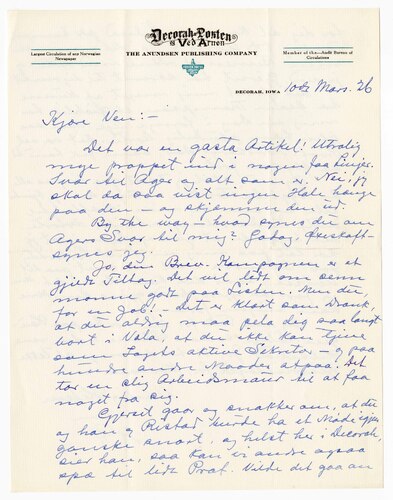 Decorah-Posten
og
Ved Arnen
Largest Circulation of any Norwegian
Newspaper
THE ANUNDSEN PUBLISHING COMPANY
Member of the—Audit Bureau of
Circulations
DECORAH, IOWA 10de Mars. 26
Kjære Ven:—
Det var en gasta Artikel! Utrolig
mye proppet ind i nogen faa Linjer.
Svar til Ager og alt som er. Nei, jeg
skal da saa vist ingen Hale hænge
paa den — og skjemme den ud.
By the way — hvad synes du om
Agers Svar til mig?
synes jeg.
Jo, din Brev-Kampagnen er et
gjildt Tiltag. Det vil lidt om senn
monne godt paa Listen. Men du
for en Job! — Det er klart som Blank,
at du aldrig maa pela dig saa langt
bort i Vola, at du ikke kan tjene
som Lagets aktive Sekretær — og paa
hundre andre Maader atpaa. Det
tar en slig Arbeidsmaur til at faa
noget fra sig.
Gjerset gaar og snakker om, at du
og han og Ristad burde ha et Møde igjen
ganske snart, og helst her i Decorah,
sier han, saa kan vi andre ogsaa
spa til lidt Prat. Vilde det gaa an